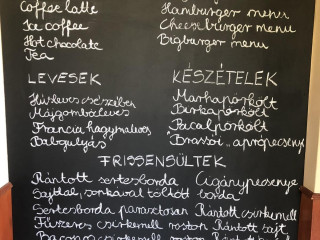 Coffee latte
Ice coffee
Hot chocolate
Tea
Hamburger menu
Cheeseburger menu
Bigburger menu
LEVESEK
Húsleves csészében
Májgombócleves
Francia hagymaleves
Babgulyás
KÉSZÉTELEK
Marhapörkölt
Birkapörkölt
Pacalpörkölt
"Brassói" aprópecsenye
FRISSENSÜLTEK
Rántott sertésborda Cigánypecsenye
Sajttal, sonkával töltött borda
Sertésborda parasztosan Rántott csirkemell
Fűszeres csirkemell roston Rántott sajt
csirkemell roston